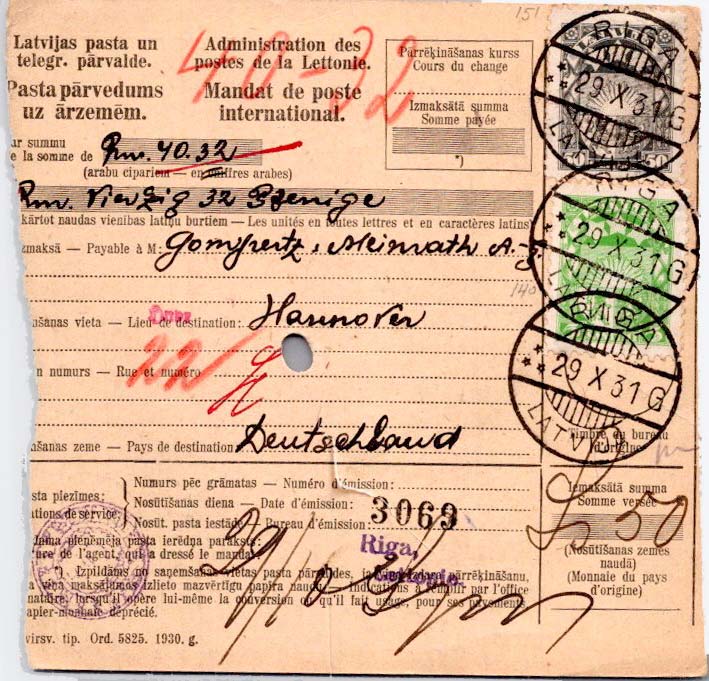 151
Latvijas pasta un
telegr. pārvalde.
Pasta pārvedums
uz ārzemēm.
Administration des
postes de la Lettonie.
Mandat de poste
international.
40-32
Pārrēķināšanas kurss
Cours du change
Izmaksātā summa
Somme payée
*)
RIGA
29 X 31 G
LATVIJA
50 50
RIGA
29 X 31 G
LATVIJA
RIGA
29 X 31 G
LATVIJA
ar summu
de la somme de Rm. 40.32
(arabu cipariem — en chiffres arabes)
Rm. Vierzig 32 Pfenige
kārtot naudas vienības latiņu burtiem — Les unités en toutes lettres et en caractères latins
zmaksā — Payable à M: Gompertz & Meinrath A.-G
140
šanas vieta — Lieu de destination: Hannover
22/
n numurs — Rue et numéro
šanas zeme — Pays de destination: Deutschland
Timbre du bureau
d'origine
sta piezīmes:
ations de service:
Numurs pēc grāmatas — Numéro d'émission:
Nosūtīšanas diena — Date d'émission:
Nosūt. pasta iestāde — Bureau d'émission:
3069
Riga,
Izmaksātā summa
Somme versée
Ls 50
(Nosūtīšanas zemes
naudā)
(Monnaie du pays
d'origine)
dama pieņēmēja pasta ierēdņa paraksts:
ure de l'agent, qui a dressé le mandat
*) Izpildāms no saņemšanas vietas pasta pārvaldes, ja tā izdara pārrēķināšanu,
vai maksājumos izlieto mazvērtīgu papīra naudu. — Indications à remplir par l'office
nataire, lorsqu'il opère lui-même la conversion ou qu'il fait usage, pour ses payements
apier-monnaie déprécié.
virsv. tip. Ord. 5825. 1930. g.